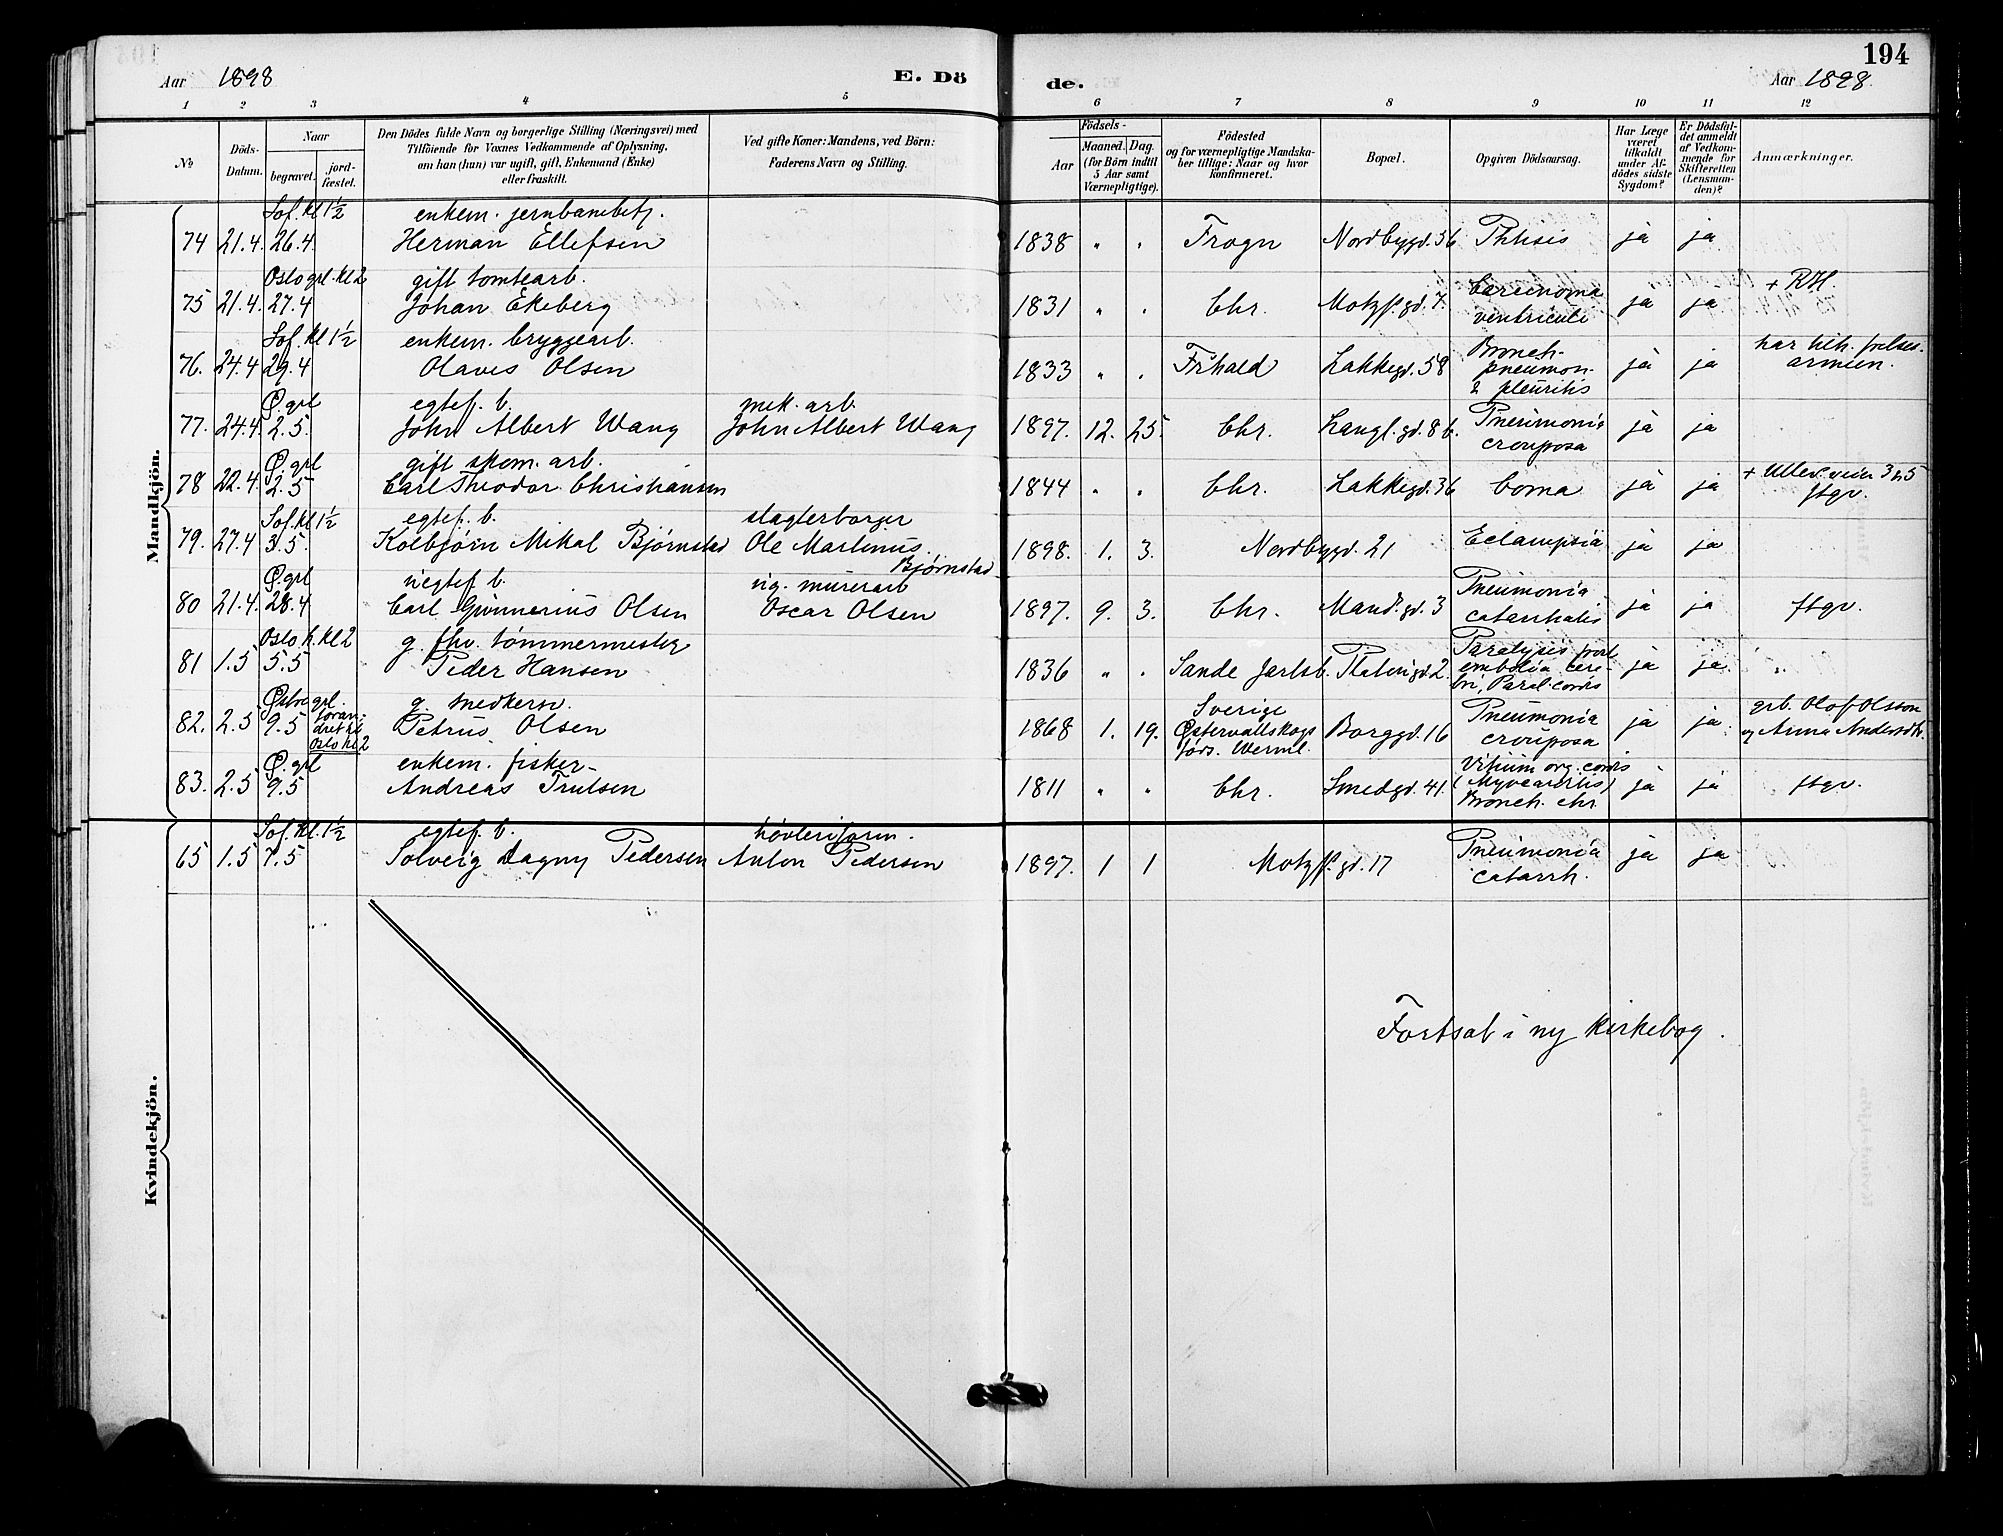 194
Aar 1898
E. Dö
de.
Aar 1898.
1 2 3 4 5 6 7 8 9 10 11 12
№
Döds-
Datum.
Naar
begravet.
jord-
fæstet.
Den Dödes fulde Navn og borgerlige Stilling (Næringsvei) med
Tilföiende for Voxnes Vedkommende af Oplysning,
om han (hun) var ugift, gift, Enkemand (Enke)
eller fraskilt.
Ved gifte Koner: Mandens, ved Börn:
Faderens Navn og Stilling.
Födsels-
Aar
Maaned. Dag.
(for Börn indtil
5 Aar samt
Værnepligtige).
Födested
og for værnepligtige Mandska-
ber tillige: Naar og hvor
konfirmeret.
Bopæl.
Opgiven Dödsaarsag.
Har Læge
været
tilkaldt
under Af-
dödes sidste
Sygdom?
Er Dödsfal-
det anmeldt
af Vedkom-
mende for
Skifteretten
(Lensman-
den)?
Anmærkninger.
Mandkjön.
Sof. kl 1½ enkem. jernbanebetj.
74 21.4. 26.4 Herman Ellefsen 1838 " . Frogn Nordbygd. 36 Phtisis ja ja
Oslo grl. kl 2 gift tomtearb. Carcinoma + RH.
75 21.4. 27.4 Johan Ekeberg 1831 " . Chr. Motzf. gd. 7. ventriculi ja ja
Sof. kl 1½ enkem. bryggearb. Bronch- har tilh. frelses-
76. 24.4 29.4 Olaves Olsen 1833 " . Frhald Lakkegd. 58 pneumon. ja ja armeen.
& pleuritis
Ø. grl egtef. b. mek. arb. Pneumonia
77. 24.4. 2.5. John Albert Wang John Albert Wang 1897. 12. 25. Chr. Langl. gd. 8 b. crouposa ja ja
Ø. grl gift skom. arb. + Ullev. veien 3 h 5
78 22.4. 2.5 Carl Theodor Christiansen 1844 " . Chr. Lakkegd. 36 Coma ja ja ftgr.
Sof. kl 1½ egtef. b. slagterborger
79. 27.4 3.5. Kolbjørn Mikal Bjørnstad Ole Martinus 1898. 1. 3. Nordbygd. 21 Eclampsia ja ja
Bjørnstad
Ø. grl uegtef b. ug. murerarb Pneumonia
80 21.4. 28.4 Carl Gunnerius Olsen Oscar Olsen 1897. 9. 3. Chr. Mand. gd. 3 catarrhalis ja ja ftgr.
Oslo k. kl 2 g. fhv. tømmermester Paralysis
81 1.5 5.5 Peder Hansen 1836 " . Sande Jarlsb. Platougd. 2. embolia cere- ja ja "
bri, Paral. cordis
Østre grl. g. snedkersv. Sverige Pneumonia grb. Olof Olsson
82. 2.5 9.5 foran- Petrus Olsen 1868 1. 19. Østervallskogs Borggd. 16 crouposa ja ja. og Anna Andersdtr.
dret kl
Oslo kl 2 førs. Werml.
Ø. grl enkem. fisker- Vitium org. cordis
83. 2.5 9.5 Andreas Trulsen 1811 " " Chr. Smedgd. 41. (Myocarditis) ja ja ftgr.
Bronch. chr.
Kvindekjön.
Sof. kl. 1½ egtef. b. høvleriform. Pneumonia
65 1.5 7.5 Solveig Dagny Pedersen Anton Pedersen 1897. 1 1 Motzf. gd. 17 catarrh. ja ja
Fortsat i ny kirkebog.